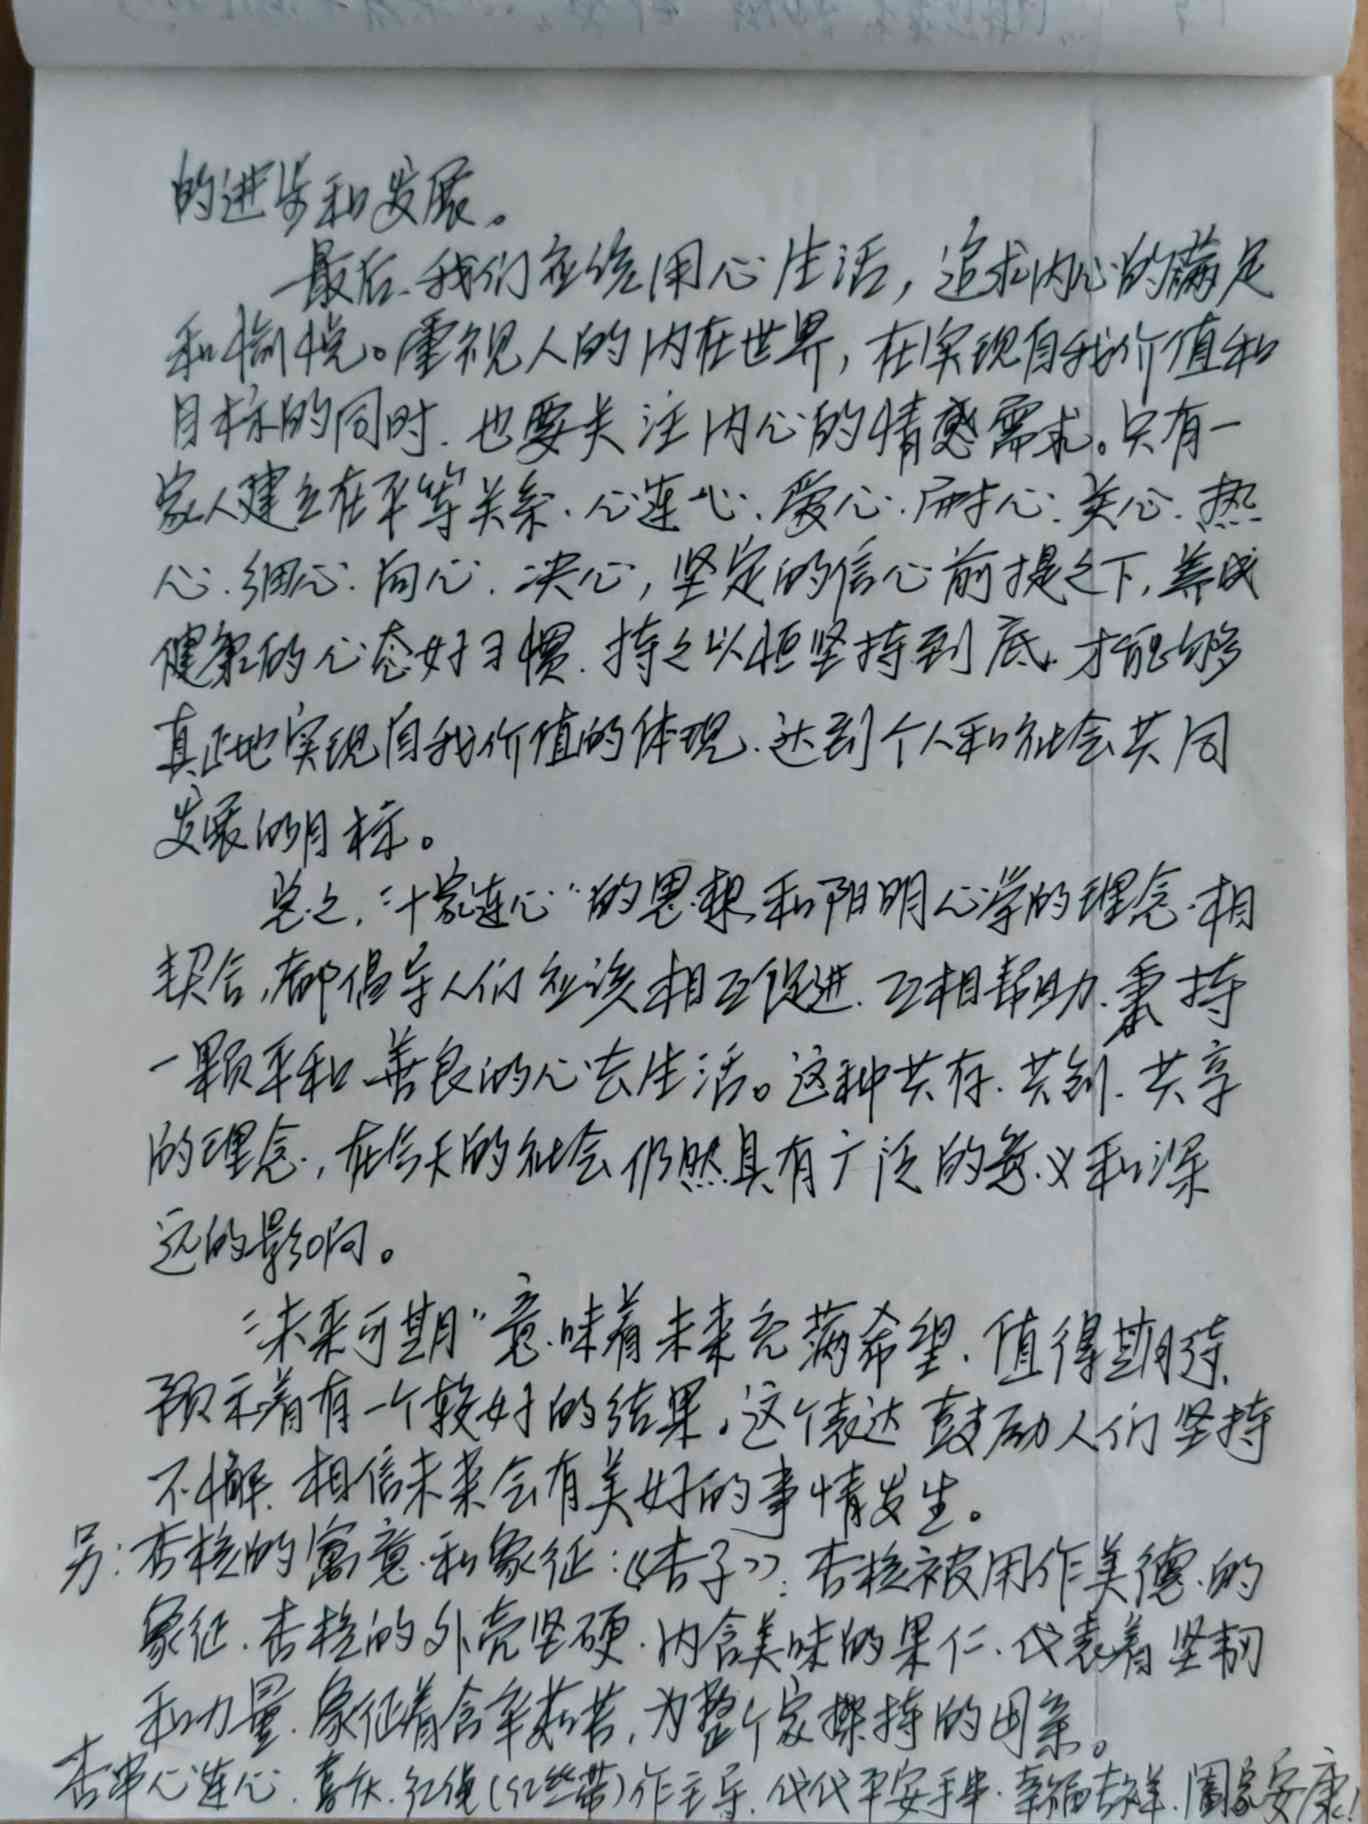 的进步和发展。
最后、我们应给用心生活，追求内心的满足
和愉悦。重视人的内在世界，在实现自我价值和
目标的同时、也要关注内心的情感需求。只有一
家人建立在平等关系、心连心、爱心、耐心、关心、热
心、细心、同心、决心，坚定的信心前提之下，养成
健康的心态好习惯、持之以恒坚持到底、才能够
真正地实现自我价值的体现、达到个人和社会共同
发展的目标。
总之，“十家连心”的思想和阳明心学的理念相
契合，都倡导人们应该相互促进、互相帮助、秉持
一颗平和善良的心去生活。这种共存、共创、共享
的理念，在今天的社会仍然具有广泛的意义和深
远的影响。
“未来可期”意味着未来充满希望、值得期待、
预示着有一个较好的结果。这个表达鼓励人们坚持
不懈、相信未来会有美好的事情发生。
另：杏核的寓意和象征：《杏子》：杏核被用作美德的
象征、杏核的外壳坚硬、内含美味的果仁、代表着坚韧
和力量、象征着含辛茹苦，为整个家操持的母亲。
杏串心连心、喜庆、红绳(红丝带)作主导、代代平安手串、幸福吉祥、阖家安康！